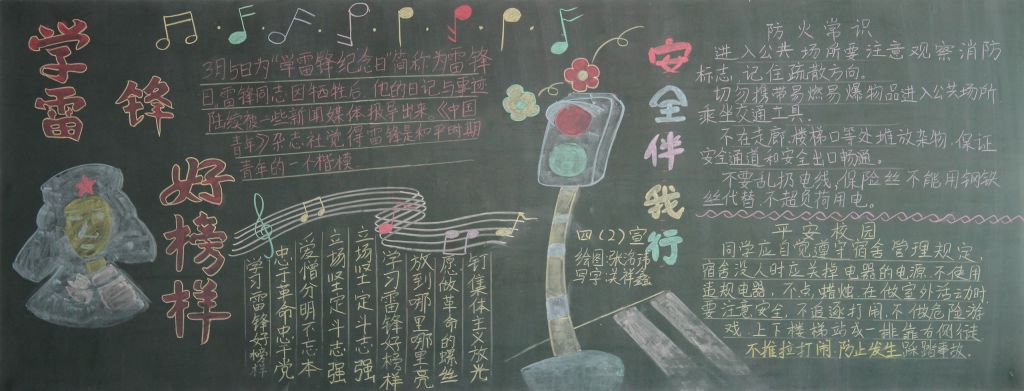 学雷锋
好榜样
3月5日为"学雷锋纪念日"简称为雷锋
日,雷锋同志因牺牲后,他的日记与事迹
陆续被一些新闻媒体报导出来,《中国
青年》杂志社觉得雷锋是和平时期
青年的一个楷模
学习雷锋好榜样
忠于革命忠于党
爱憎分明不忘本
立场坚定斗志强
立场坚定斗志强
学习雷锋好榜样
放到哪里哪里亮
愿做革命的螺丝
钉集体主义放光
安全伴我行
四(2)宣
绘图:张
写字:吴梓鑫
防火常识
进入公共场所要注意观察消防
标志,记住疏散方向。
切勿携带易燃易爆物品进入公共场所
乘坐交通工具。
不在走廊、楼梯口等处堆放杂物,保证
安全通道和安全出口畅通。
不要乱扔电线,保险丝不能用钢铁
丝代替,不超负荷用电。
平安校园
同学应自觉遵守宿舍管理规定,
宿舍没人时应关掉电器的电源,不使用
违规电器,不点蜡烛,在做室外活动时
要注意安全,不追逐打闹,不做危险游
戏,上下楼梯站成一排靠右侧徒
不推拉打闹,防止发生踩踏事故。